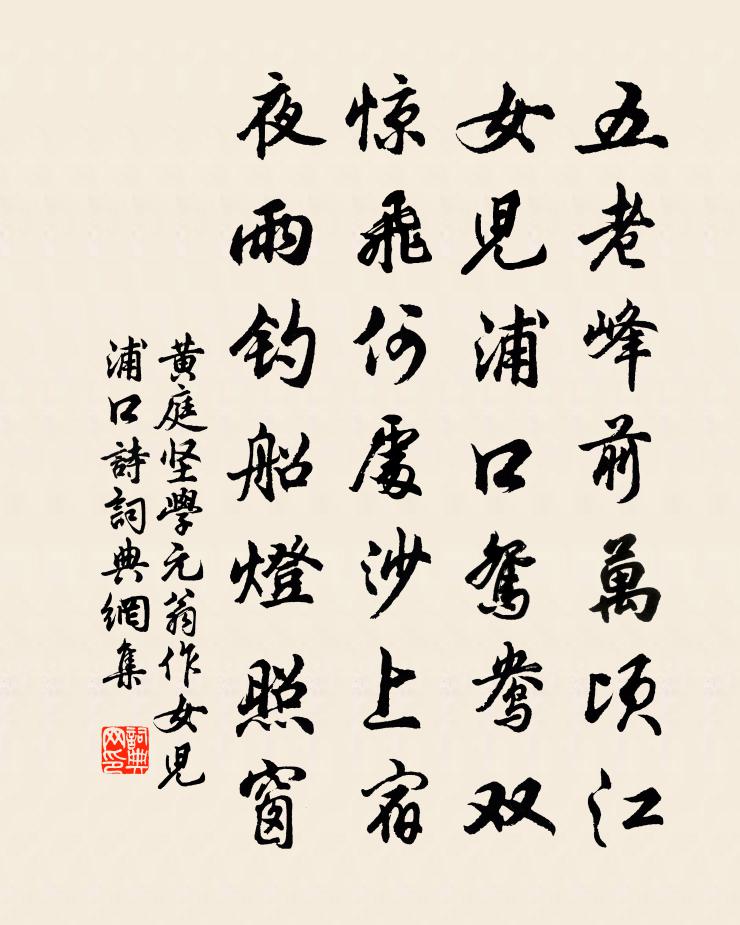 五老峰前萬頃江
女児浦口鴛鴦双
惊飛何處沙上宿
夜雨釣船燈照窗
黄庭坚學元翁作女児
浦口詩詞典網集
詞典
网印